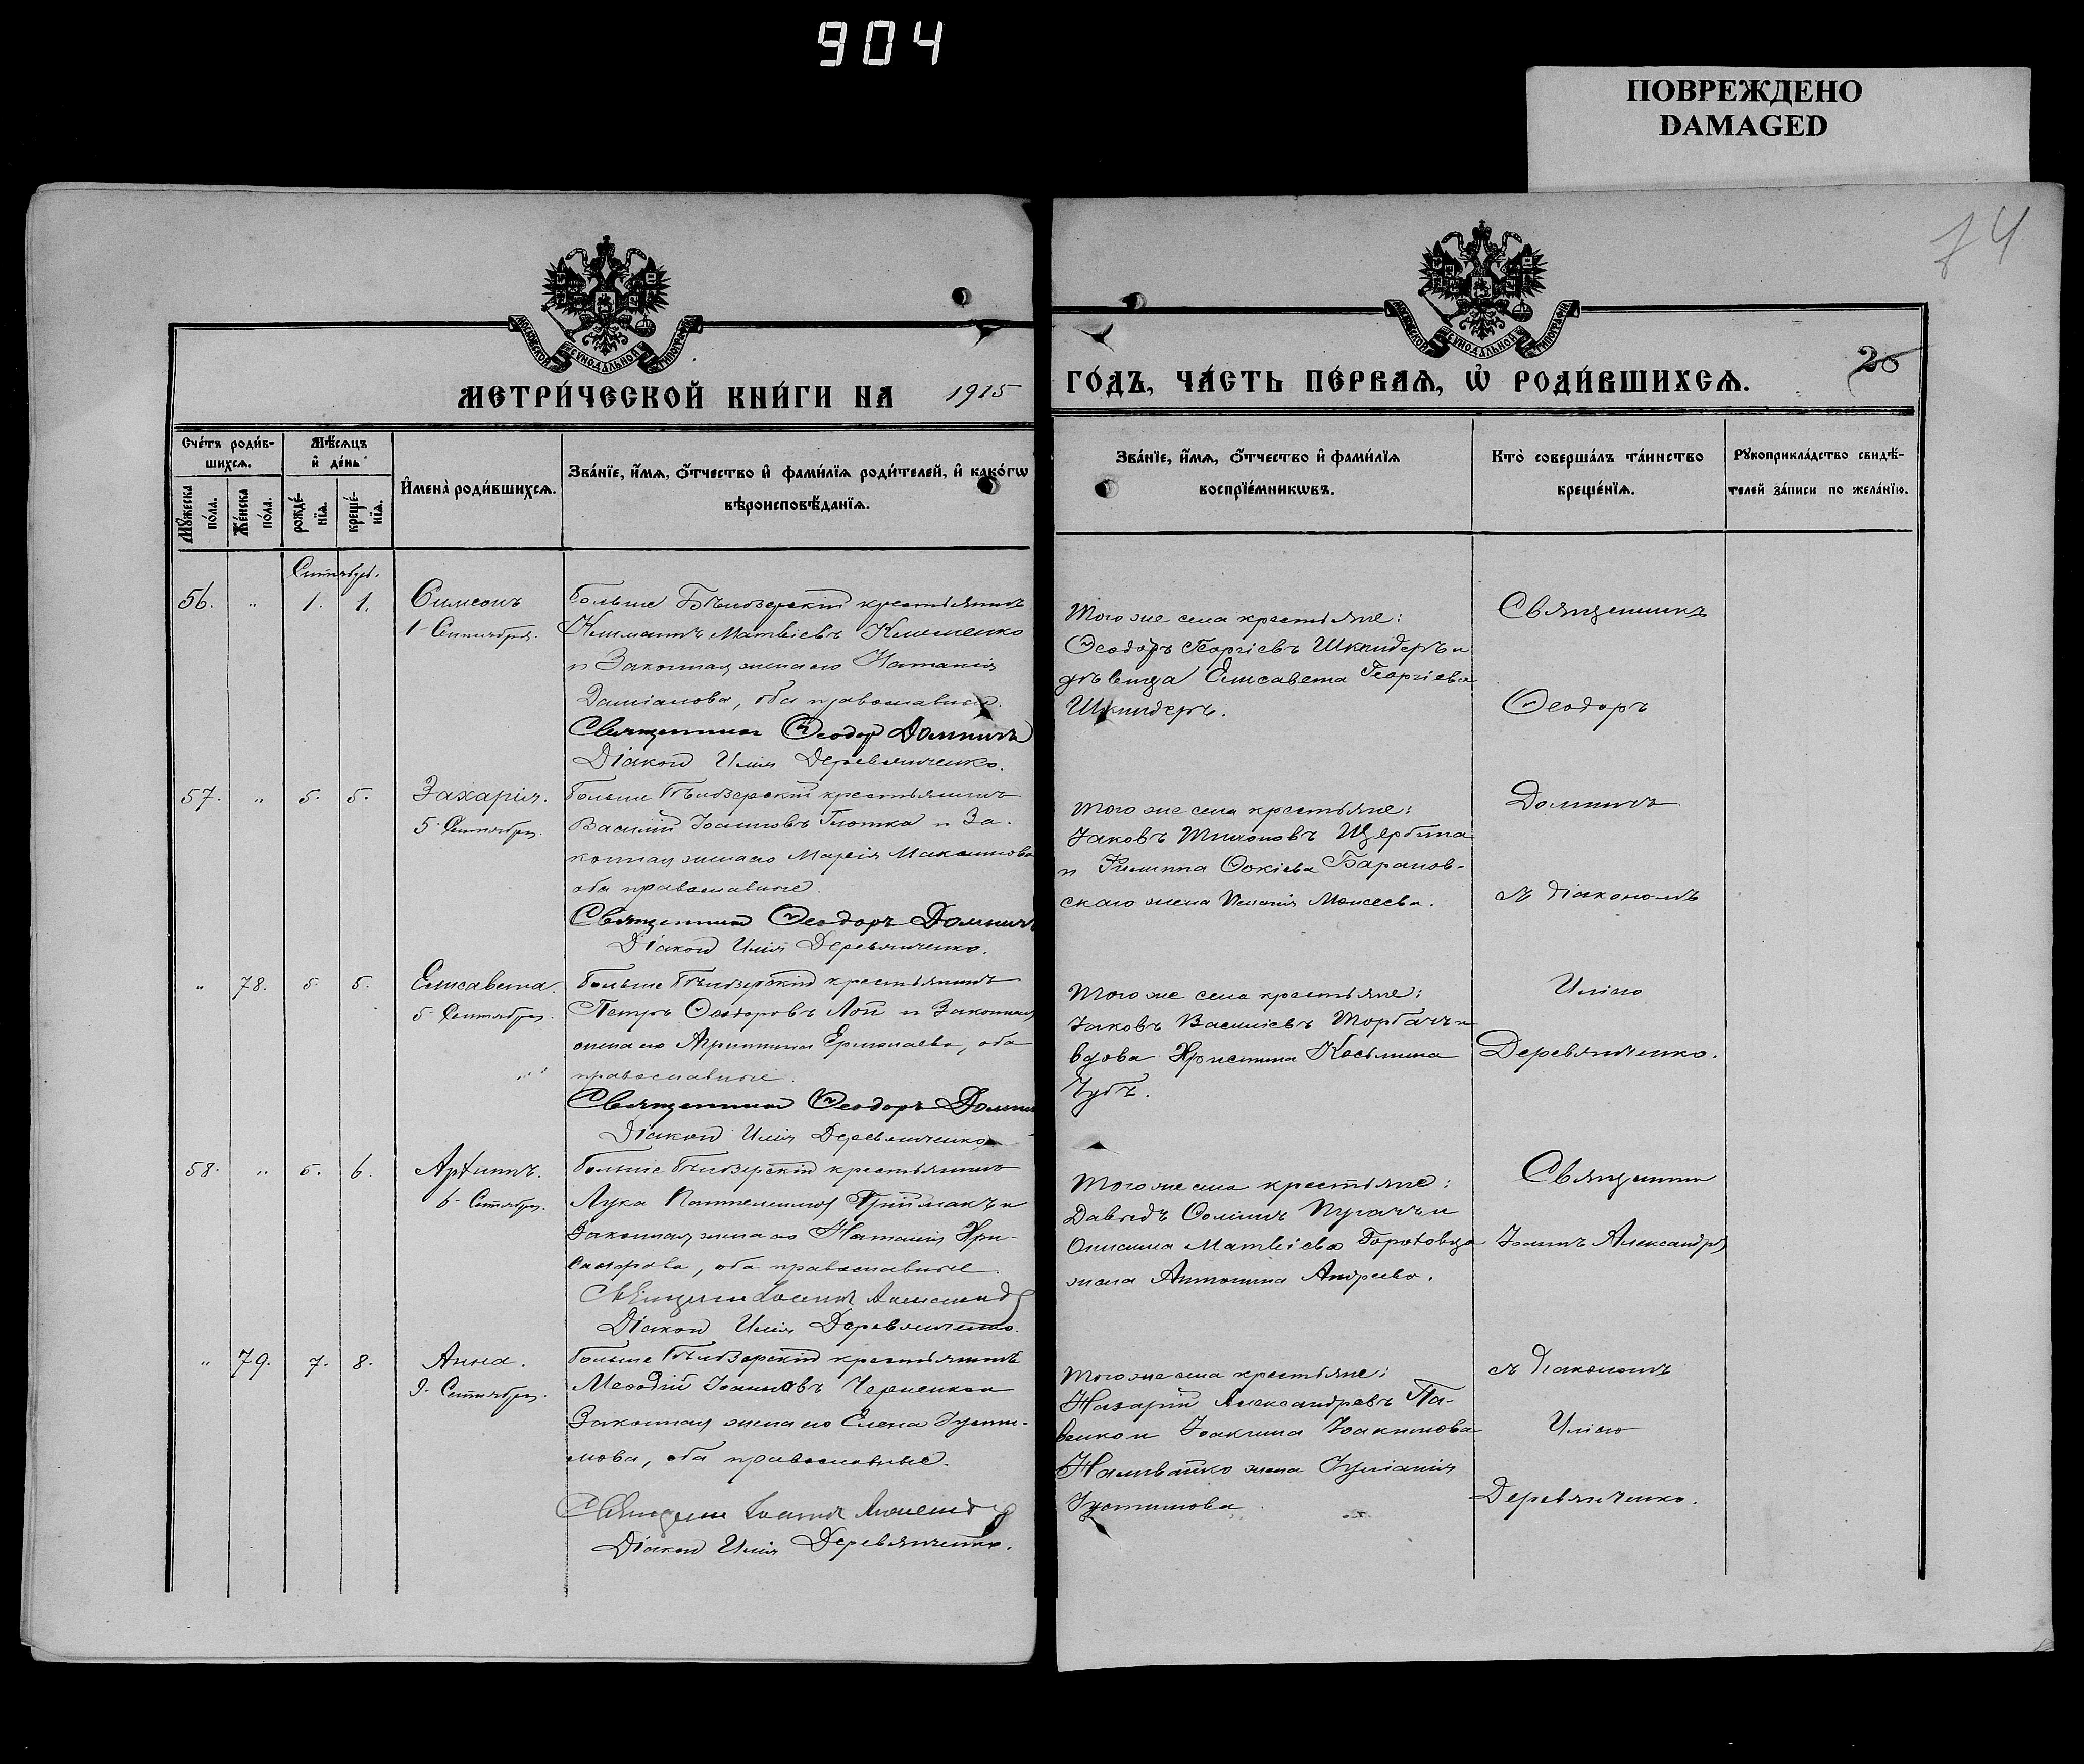 904
ПОВРЕЖДЕНО
DAMAGED
74
МОСКОВСКОЙ СѴНОДАЛЬНОЙ ТИПОГРАФІИ
МОСКОВСКОЙ СѴНОДАЛЬНОЙ ТИПОГРАФІИ
20
МЕТРИ́ЧЕСКОЙ КНИ́ГИ НА 1915
ГО́ДЪ, ЧА́СТЬ ПЕ́РВАѦ, Ѡ РОДИ́ВШИХСѦ.
Сче́тъ роди́в-
шихсѧ.
Мꙋ́жеска по́ла.
Же́нска по́ла.
Мѣ́сѧцъ
и҆ де́нь
рожде́-
нїѧ.
креще́-
нїѧ.
И҆мена̀ роди́вшихсѧ.
Зва́нїе, и҆́мѧ, ѻ҆́тчество и҆ фами́лїѧ роди́телей, и҆ како́гѡ
вѣроисповѣ́данїѧ.
Зва́нїе, и҆́мѧ, ѻ҆́тчество и҆ фами́лїѧ
воспрїе́мникѡвъ.
Кто̀ соверша́лъ та́инство
креще́нїѧ.
Рꙋкоприкла́дство свидѣ́-
телей за́писи по жела́нїю.
Сентябрь.
56. " 1. 1. Симеонъ
1 Сентября.
Больше Бѣлозерскій крестьянинъ
Матвіевъ Клименко
и законная жена его Наталія
Даміанова, оба православные.
Священникъ Ѳеодоръ Домничъ
Діаконъ Илія Деревянченко.
Того же села крестьяне:
Ѳеодоръ Георгіевъ Шкиндеръ и
дѣвица Елисавета Георгіева
Шкиндеръ.
Священникъ
Ѳеодоръ
57. " 5. 5. Захарія.
5 Сентября.
Больше Бѣлозерскій крестьянинъ
Василій Іоанновъ Глотка и за-
конная жена его Марія Максимова
оба православные.
Священникъ Ѳеодоръ Домничъ
Діаконъ Илія Деревянченко.
Того же села крестьяне:
Іаковъ Тихоновъ Щербина
и Филиппа Ѳокіева Баранов-
скаго жена Моисеева.
Домничъ
съ діакономъ
" 78. 5 5. Елисавета.
5 Сентября.
Больше Бѣлозерскій крестьянинъ
Петръ Ѳеодоровъ Лой и законная
жена его Агриппина Ермолаева, оба
православные.
Священникъ Ѳеодоръ Домничъ
Діаконъ Илія Деревянченко
Того же села крестьяне:
Іаковъ Василіевъ Торбачъ и
вдова Христина Косьмина
Чубъ.
Иліею
Деревянченко.
58. " 5. 6. 
6 Сентября.
Больше Бѣлозерскій крестьянинъ
Лука Пантелеимоновъ Приймакъ и
законная жена его Наталія Хри-
санфова, оба православные
Священникъ Іоаннъ
Діаконъ Илія Деревянченко.
Того же села крестьяне:
Давидъ Ѳоминъ Пугачъ и
Онисима Матвіева
жена Антонина Андреева.
Священникъ
Іоаннъ Александровъ
" 79. 7. 8. Анна.
9 Сентября.
Больше Бѣлозерскій крестьянинъ
Меѳодій Іоанновъ Черненко и
законная жена его Елена Іусти-
нова, оба православные.
Священникъ Іоаннъ
Діаконъ Илія Деревянченко.
Того же села крестьяне:
Назарій Александровъ Па-
вленко и Іоакима Іоакимова
Наливайко жена Іуліанія
Іустинова.
съ діакономъ
Иліею
Деревянченко.